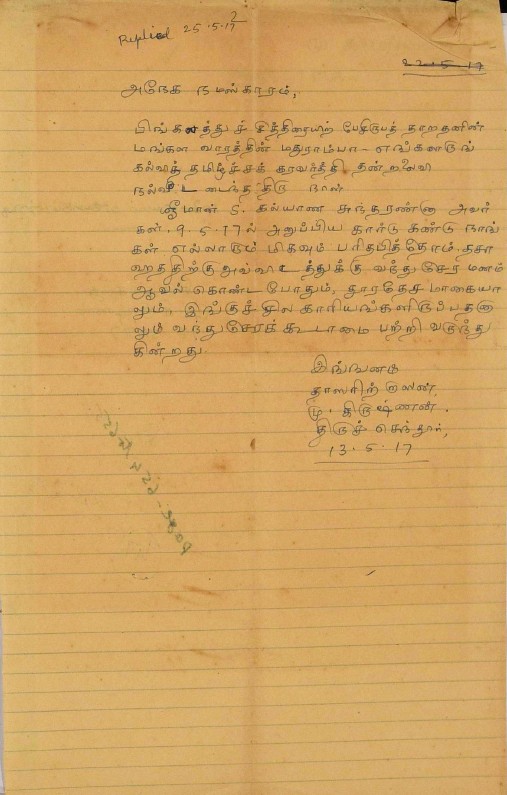 Replied 25.5.17
22.5.17
அநேக நமஸ்காரம்,
பிங்களத்துச் சித்திரையிற்
மங்கள வாரத்தின் மதுராம்பா - எங்களருங்
கல்வித் தமிழ்ச்சக் கரவர்த்தி தன்றலைவி
நல்வீட டைந்ததிரு நாள்
ஸ்ரீமான் S. கல்யாண சுந்தரண்ணா அவர்
கள், 9.5.17ல் அனுப்பிய கார்டு கண்டு நாங்
கள் எல்லாரும் மிகவும் பரிதபித்தோம். தசா
ஹத்திற்கு அவ்விடத்துக்கு வந்து சேர மனம்
ஆவல் கொண்டபோதும், தூரதேசமாகையா
லும், இங்குச் சில காரியங்களிருப்பதனா
லும் வந்துசேரக் கூடாமை பற்றி வருந்து
கின்றது.
இங்ஙனம்
தாஸரிற்றாஸன்,
மு. கிருஷ்ணன்.
திருச்செந்தூர்,
13.5.17